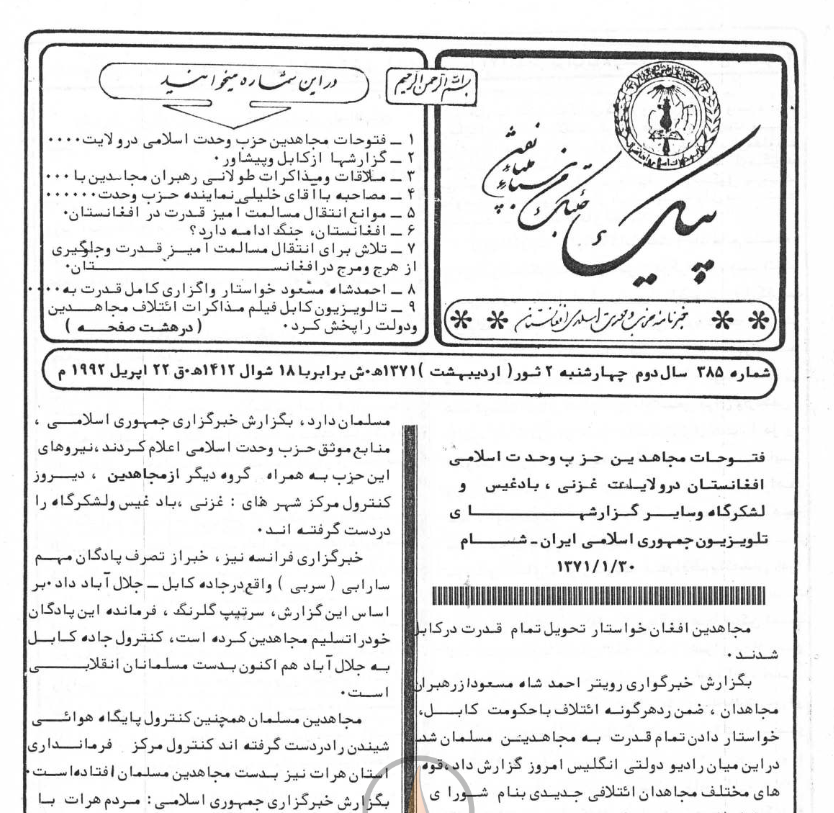 بسم الله الرحمن الرحیم
پیک
خبرنامه حزب وحدت اسلامی افغانستان
در این شماره میخوانید
۱ ــ فتوحات مجاهدین حزب وحدت اسلامی درولایت....
۲ ــ گزارشها ازکابل وپیشاور.
۳ ــ ملاقات ومذاکرات طولانی رهبران مجاهدین با ...
۴ ــ مصاحبه باآقای خلیلی نماینده حزب وحدت......
۵ ــ موانع انتقال مسالمت امیز قدرت در افغانستان.
۶ ــ افغانستان، جنگ ادامه دارد؟
۷ ــ تلاش برای انتقال مسالمت امیز قدرت وجلوگیری
از هرج ومرج درافغانستان.
۸ ــ احمدشاه مسعود خواستار واگزاری کامل قدرت به....
۹ ــ تالویزیون کابل فیلم مذاکرات ائتلاف مجاهدین
ودولت راپخش کرد. (درهشت صفحه)
شماره ۳۸۵ سال دوم چهارشنبه ۲ ثور( اردیبهشت )۱۳۷۱ه.ش برابربا ۱۸ شوال ۱۴۱۲ه.ق ۲۲ اپریل ۱۹۹۲ م
فتوحات مجاهدین حزب وحدت اسلامی
افغانستان درولایت غزنی ، بادغیس و
لشکرگاه وسایر گزارشهای
تلویزیون جمهوری اسلامی ایران ـ شام
۱۳۷۱/۱/۳۰
مجاهدین افغان خواستار تحویل تمام قدرت درکابل
شدند.
بگزارش خبرگواری رویتر احمد شاه مسعودازرهبران
مجاهدان ، ضمن ردهرگونه ائتلاف باحکومت کابل،
خواستار دادن تمام قدرت به مجاهدین مسلمان شد
دراین میان رادیو دولتی انگلیس امروز گزارش داد،قوه
های مختلف مجاهدان ائتلافی جدیدی بنام شورا ی
مسلمان دارد، بگزارش خبرگزاری جمهوری اسلامی ،
منابع موثق حزب وحدت اسلامی اعلام کردند،نیروهای
این حزب به همراه گروه دیگر ازمجاهدین ، دیروز
کنترول مرکز شهر های : غزنی ،باد غیس ولشکرگاه را
دردست گرفته اند.
خبرگزاری فرانسه نیز، خبراز تصرف پادگان مهم
سارابی ( سربی ) واقع درجاده کابل ــ جلال آباد داد.بر
اساس این گزارش، سرتیپ گلرنگ ، فرمانده این پادگان
خودراتسلیم مجاهدین کرده است، کنترول جاده کابل
به جلال آباد هم اکنون بدست مسلمانان انقلابی
است.
مجاهدین مسلمان همچنین کنترول پایگاه هوائی
شیندن رادردست گرفته اند کنترول مرکز فرمانداری
استان هرات نیز بدست مجاهدین مسلمان افتاده‌است.
بگزارش خبرگزاری جمهوری اسلامی : مردم هرات با